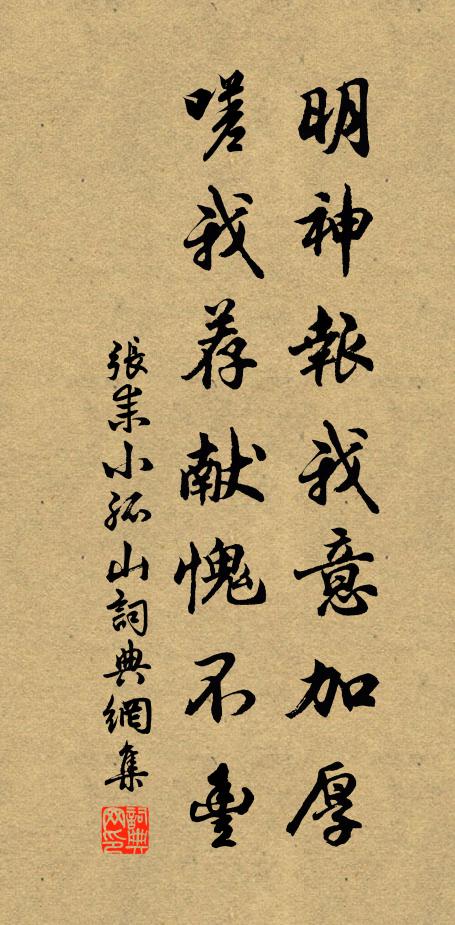 明神報我意加厚
嗟我荐献愧不豐
張耒小孤山詞典網集
詞典网印